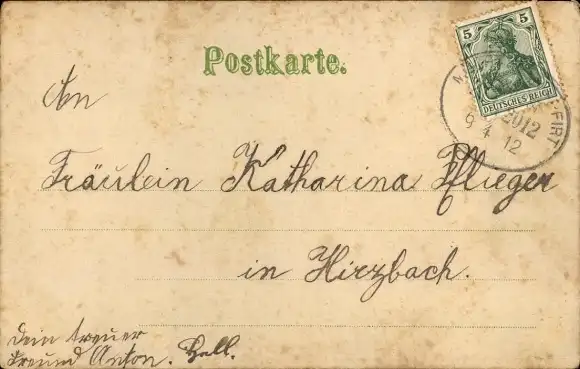 Postkarte.
5 5
DEUTSCHES REICH
FIRT
2012
6 4 12
An
Fräulein Katharina Pflieger
in Hirzbach.
Dein treuer
Freund Anton. Hall.